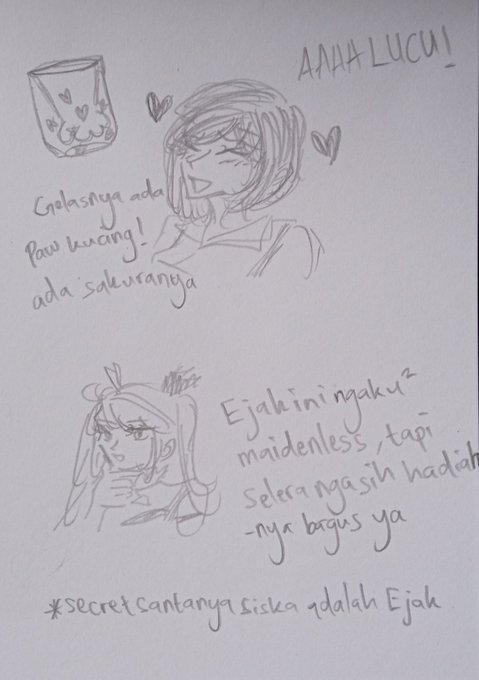 AAAA LUCU!
Gelasnya ada
Paw kucing!
ada sakuranya
Ejak ini ngaku²
maidenless, tapi
selera ngasih hadiah
-nya bagus ya
*secret santanya siska adalah Ejak